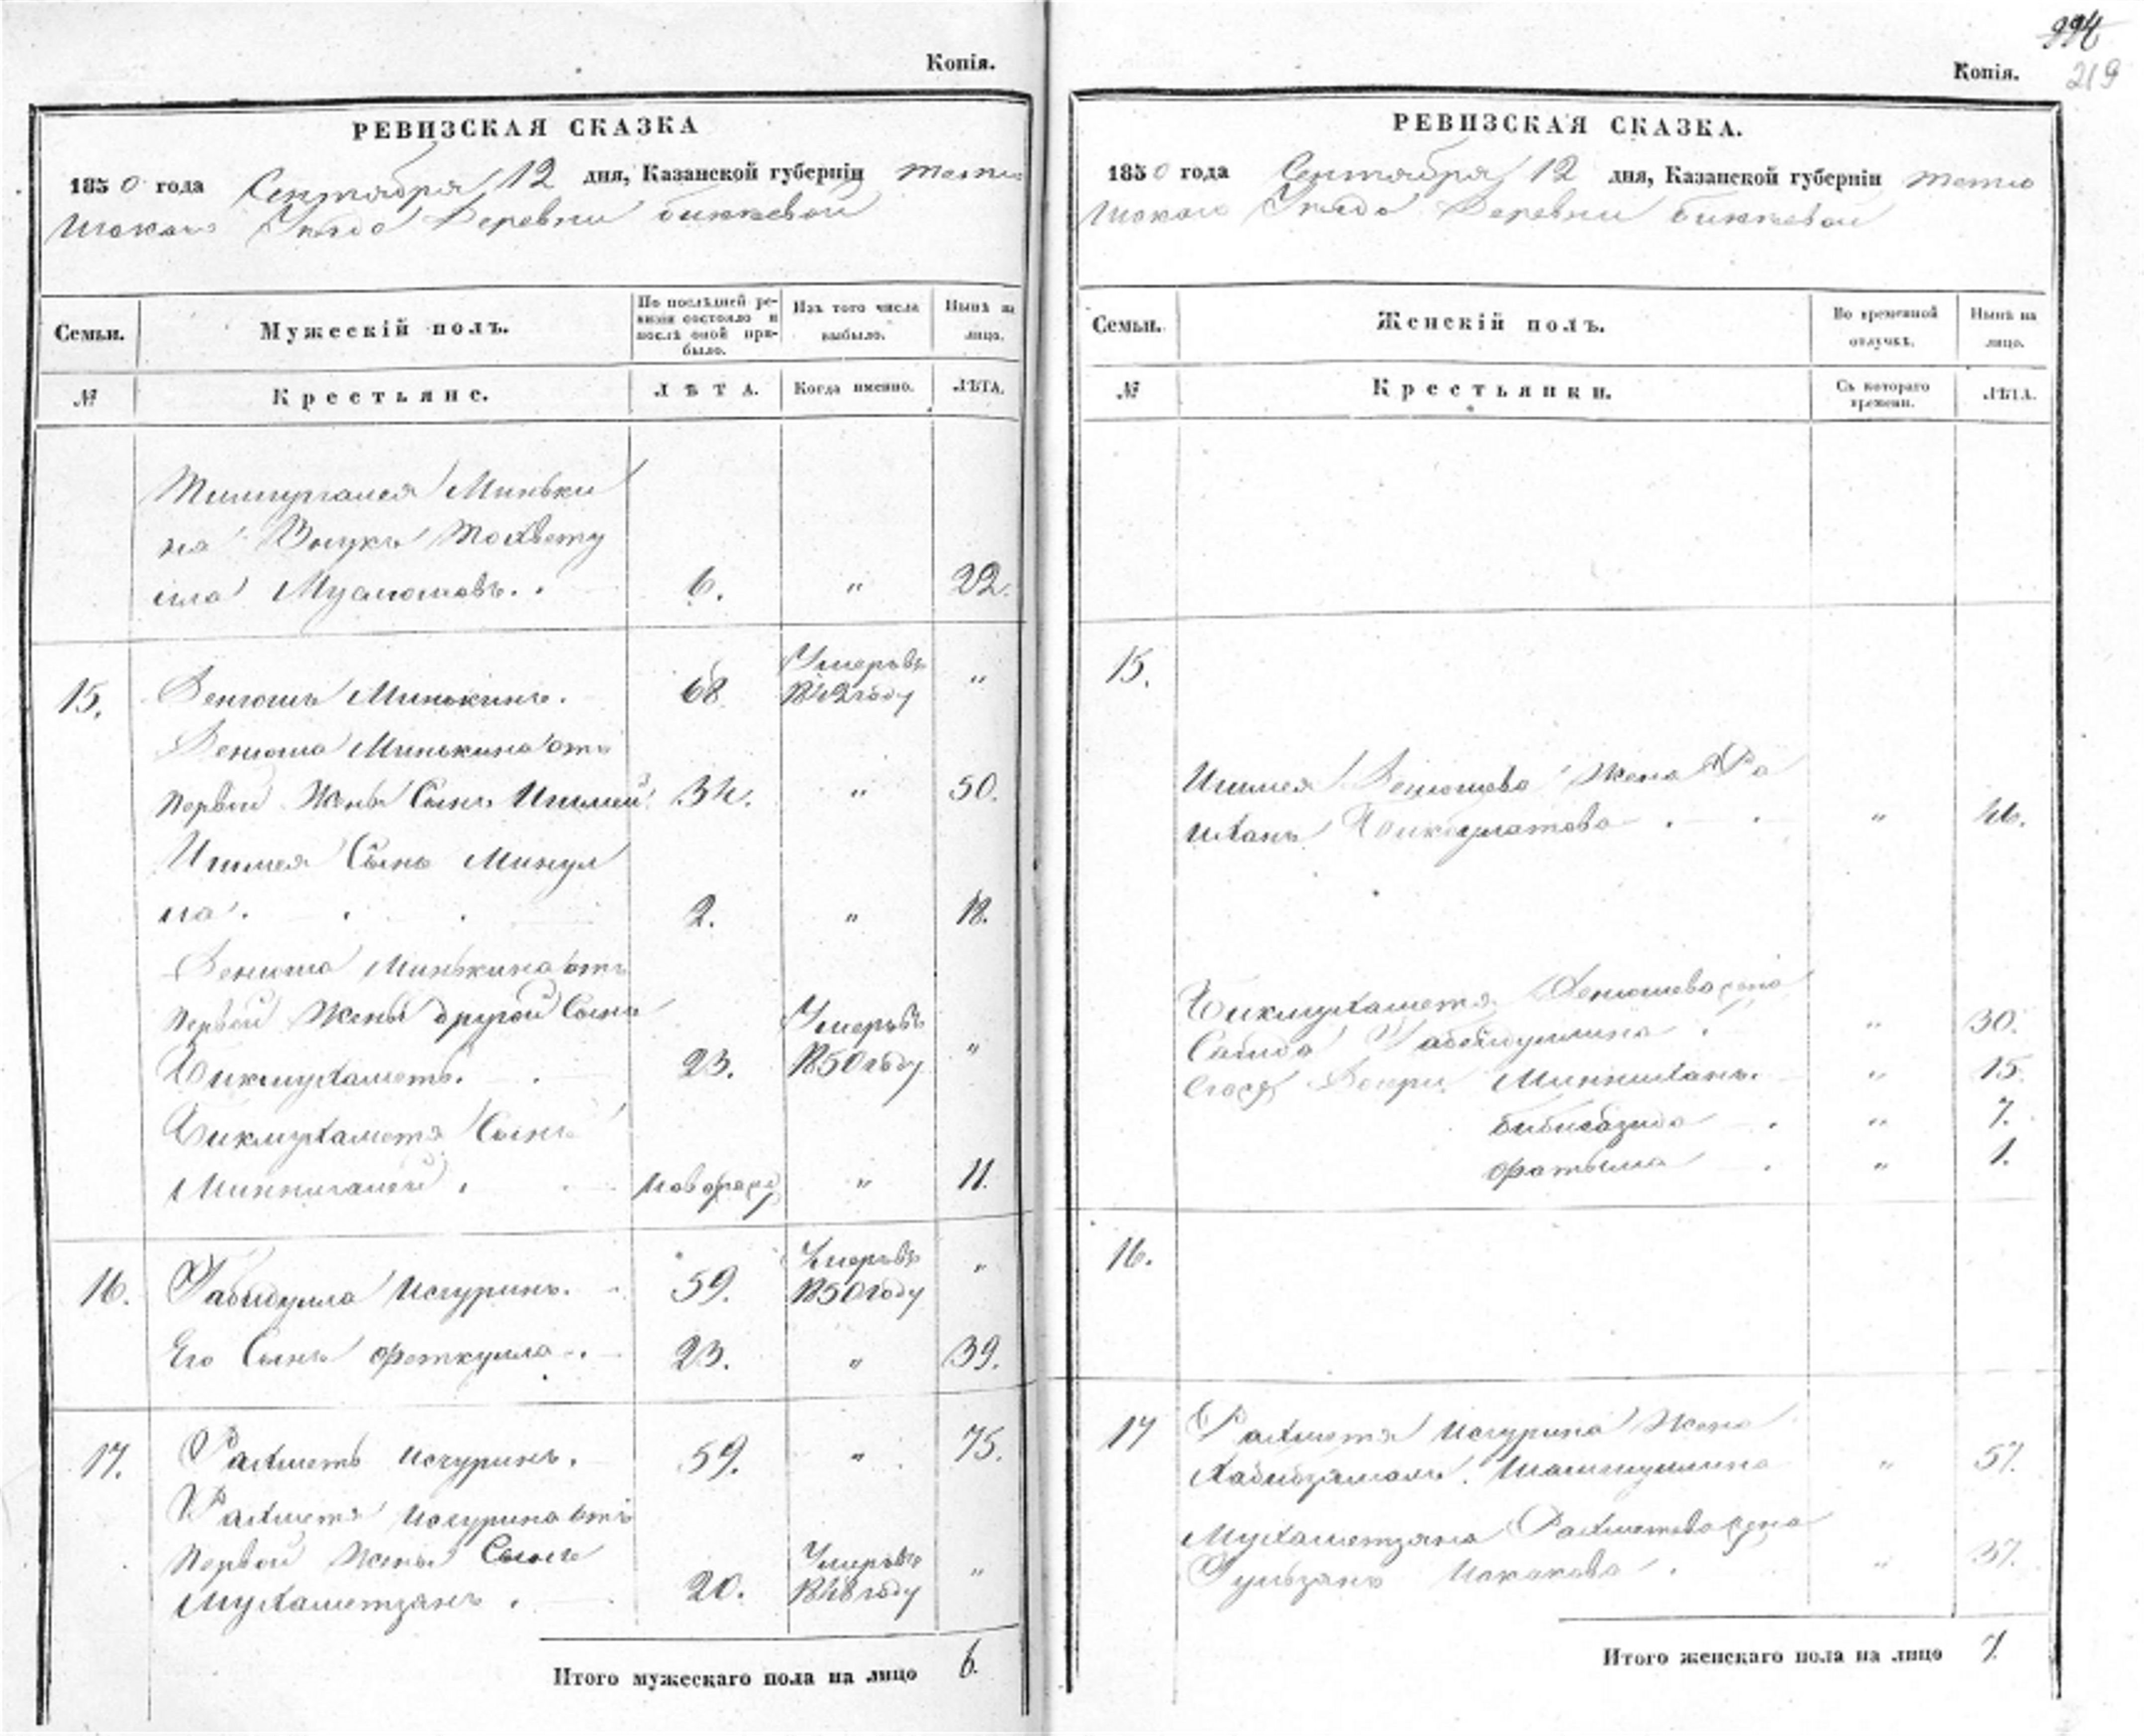 Копія.
РЕВИЗСКАЯ СКАЗКА
1850 года Сентября 12 дня, Казанской губерніи Тетю
шскаго Уѣзда Деревни Бикѣевой
Семьи.
Мужескій полъ.
По послѣдней ре-
визіи состояло и
послѣ оной при-
было.
Изъ того числа
выбыло.
Нынѣ на
лицо.
№
Крестьяне.
ЛѢТА.
Когда именно.
ЛѢТА.
Миньки
на Внукъ
6. " 22.
15. Денюшъ Минькинъ. 68 Умеръ въ 1842 году "
Денюша Минькина отъ
первой Жены Сынъ Ишмей 34. " 50.
Ишмея Сынъ Минул
ла. 2. " 18.
Денюша Минькина отъ
первой Жены другой Сынъ
Бикмухаметъ. 23. Умеръ въ 1850 году "
Бикмухаметя Сынъ
Миннигалей. новорож " 11.
16. Габидулла Исгуринъ. 59. Умеръ въ 1850 году "
Его Сынъ Феткулла. 23. " 39.
17. Рахметъ Исгуринъ. 59. " 75.
Рахметя Исгурина отъ
первой Жены Сынъ
Мухаметзянъ. 20. Умеръ въ 1848 году "
Итого мужескаго пола на лицо 6.
994
219
Копія.
РЕВИЗСКАЯ СКАЗКА.
1850 года Сентября 12 дня, Казанской губерніи Тетю
шскаго Уѣзда Деревни Бикѣевой
Семьи.
Женскій полъ.
Во временной
отлучкѣ.
Нынѣ на
лицо.
№
Крестьянки.
Съ котораго
времени.
ЛѢТА.
15.
Ишмея Денюшева Жена Ра
иханъ Бикбулатова. " 46.
Бикмухаметя Денюшева жена
Саида Габейдуллина. " 30.
Дочери Миннихань. " 15.
" 7.
Фатыма. " 1.
16.
17 Рахметя Исгурина Жена
Хабибзямалъ. " 57.
Мухаметзяна Рахметева жена
Гульзянъ Искакова. " 37.
Итого женскаго пола на лицо 7.